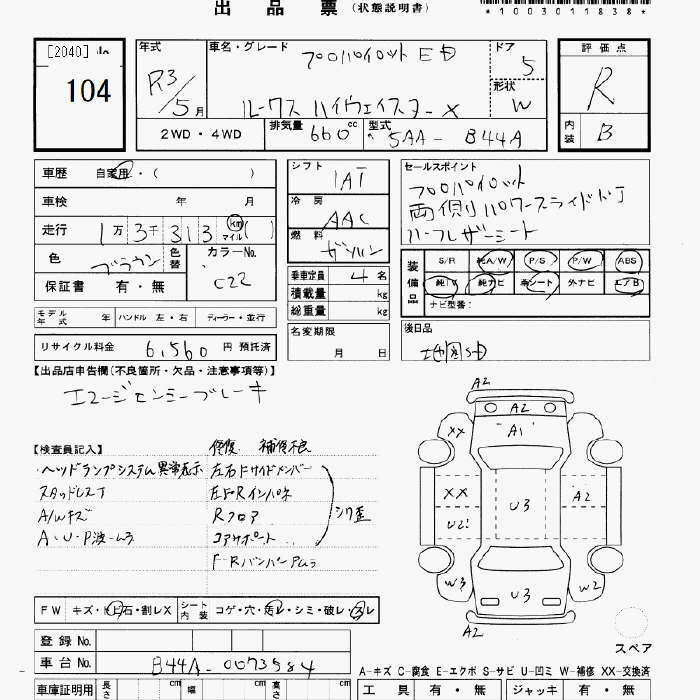 出 品 票 (状態説明書)
*1003011838*
[2040]
104
年式
R3/5月
車名・グレード
プロパイロット ED
ルークス ハイウェイスター X
ドア
5
形状
W
2WD・4WD
排気量 660 cc
型式 5AA- B44A
評価点
R
内装 B
車歴 自家用・( )
車検 年 月
走行 1万3千313 km マイル ( )
色 ブラウン 色替
カラーNo. C22
保証書 有・無
シフト IAT
冷房 AAC
燃料 ガソリン
乗車定員 4名
積載量 kg
総重量 kg
セールスポイント
プロパイロット
両側パワースライドドア
ハーフレザーシート
装備品
S/R 純A/W P/S P/W ABS
純TV 純ナビ 革シート 外ナビ エアB
ナビ型番:
モデル年式 年 ハンドル 左・右 ディーラー・並行
リサイクル料金 6,560 円 預託済
名変期限
月 日
後日品
地図SD
【出品店申告欄(不良箇所・欠品・注意事項等)】
エマージェンシーブレーキ
【検査員記入】
修復 補修不良
ヘッドランプシステム異常表示 左右Fサイドメンバー
スタッドレスT 左F・Rインパネ
A/Wキズ Rフロア
A・U・P波ームラ コアサポート
シワ歪
F・Rバンパー Aムラ
A2
A2
XX
A1
XX
U2
U3
A2
W3
U3
W2
A2
スペア
FW キズ・ヒビ石・割レX シート内装 コゲ・穴・汚レ・シミ・破レ・スレ
登録 No.
車台 No. B44A-0073584
A-キズ C-腐食 E-エクボ S-サビ U-凹ミ W-補修 XX-交換済
車庫証明用 長さ cm 幅 cm 高さ cm
工具 有・無 ジャッキ 有・無